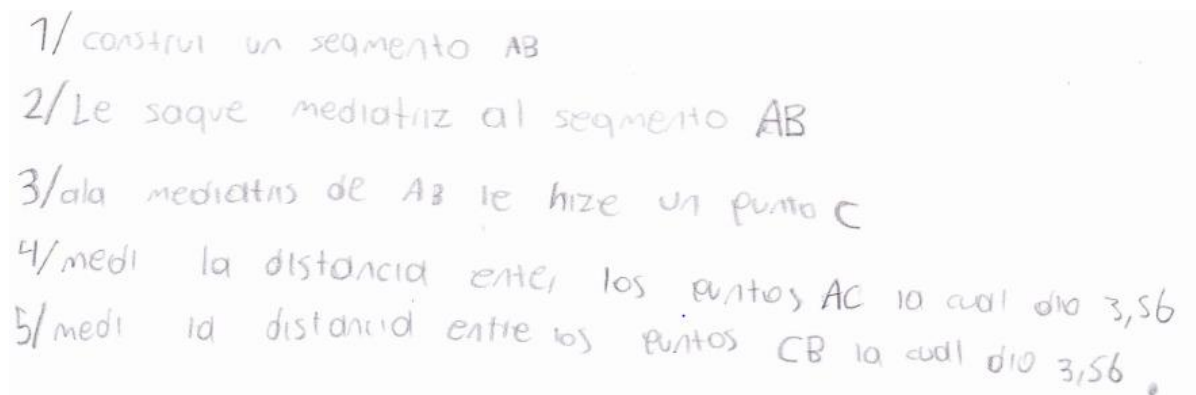 1/ construi un segmento AB
2/ Le saque mediatriz al segmento AB
3/ ala mediatris de AB le hize un punto C
4/ medi la distancia enter los puntos AC la cual dio 3,56
5/ medi la distancia entre los puntos CB la cual dio 3,56.